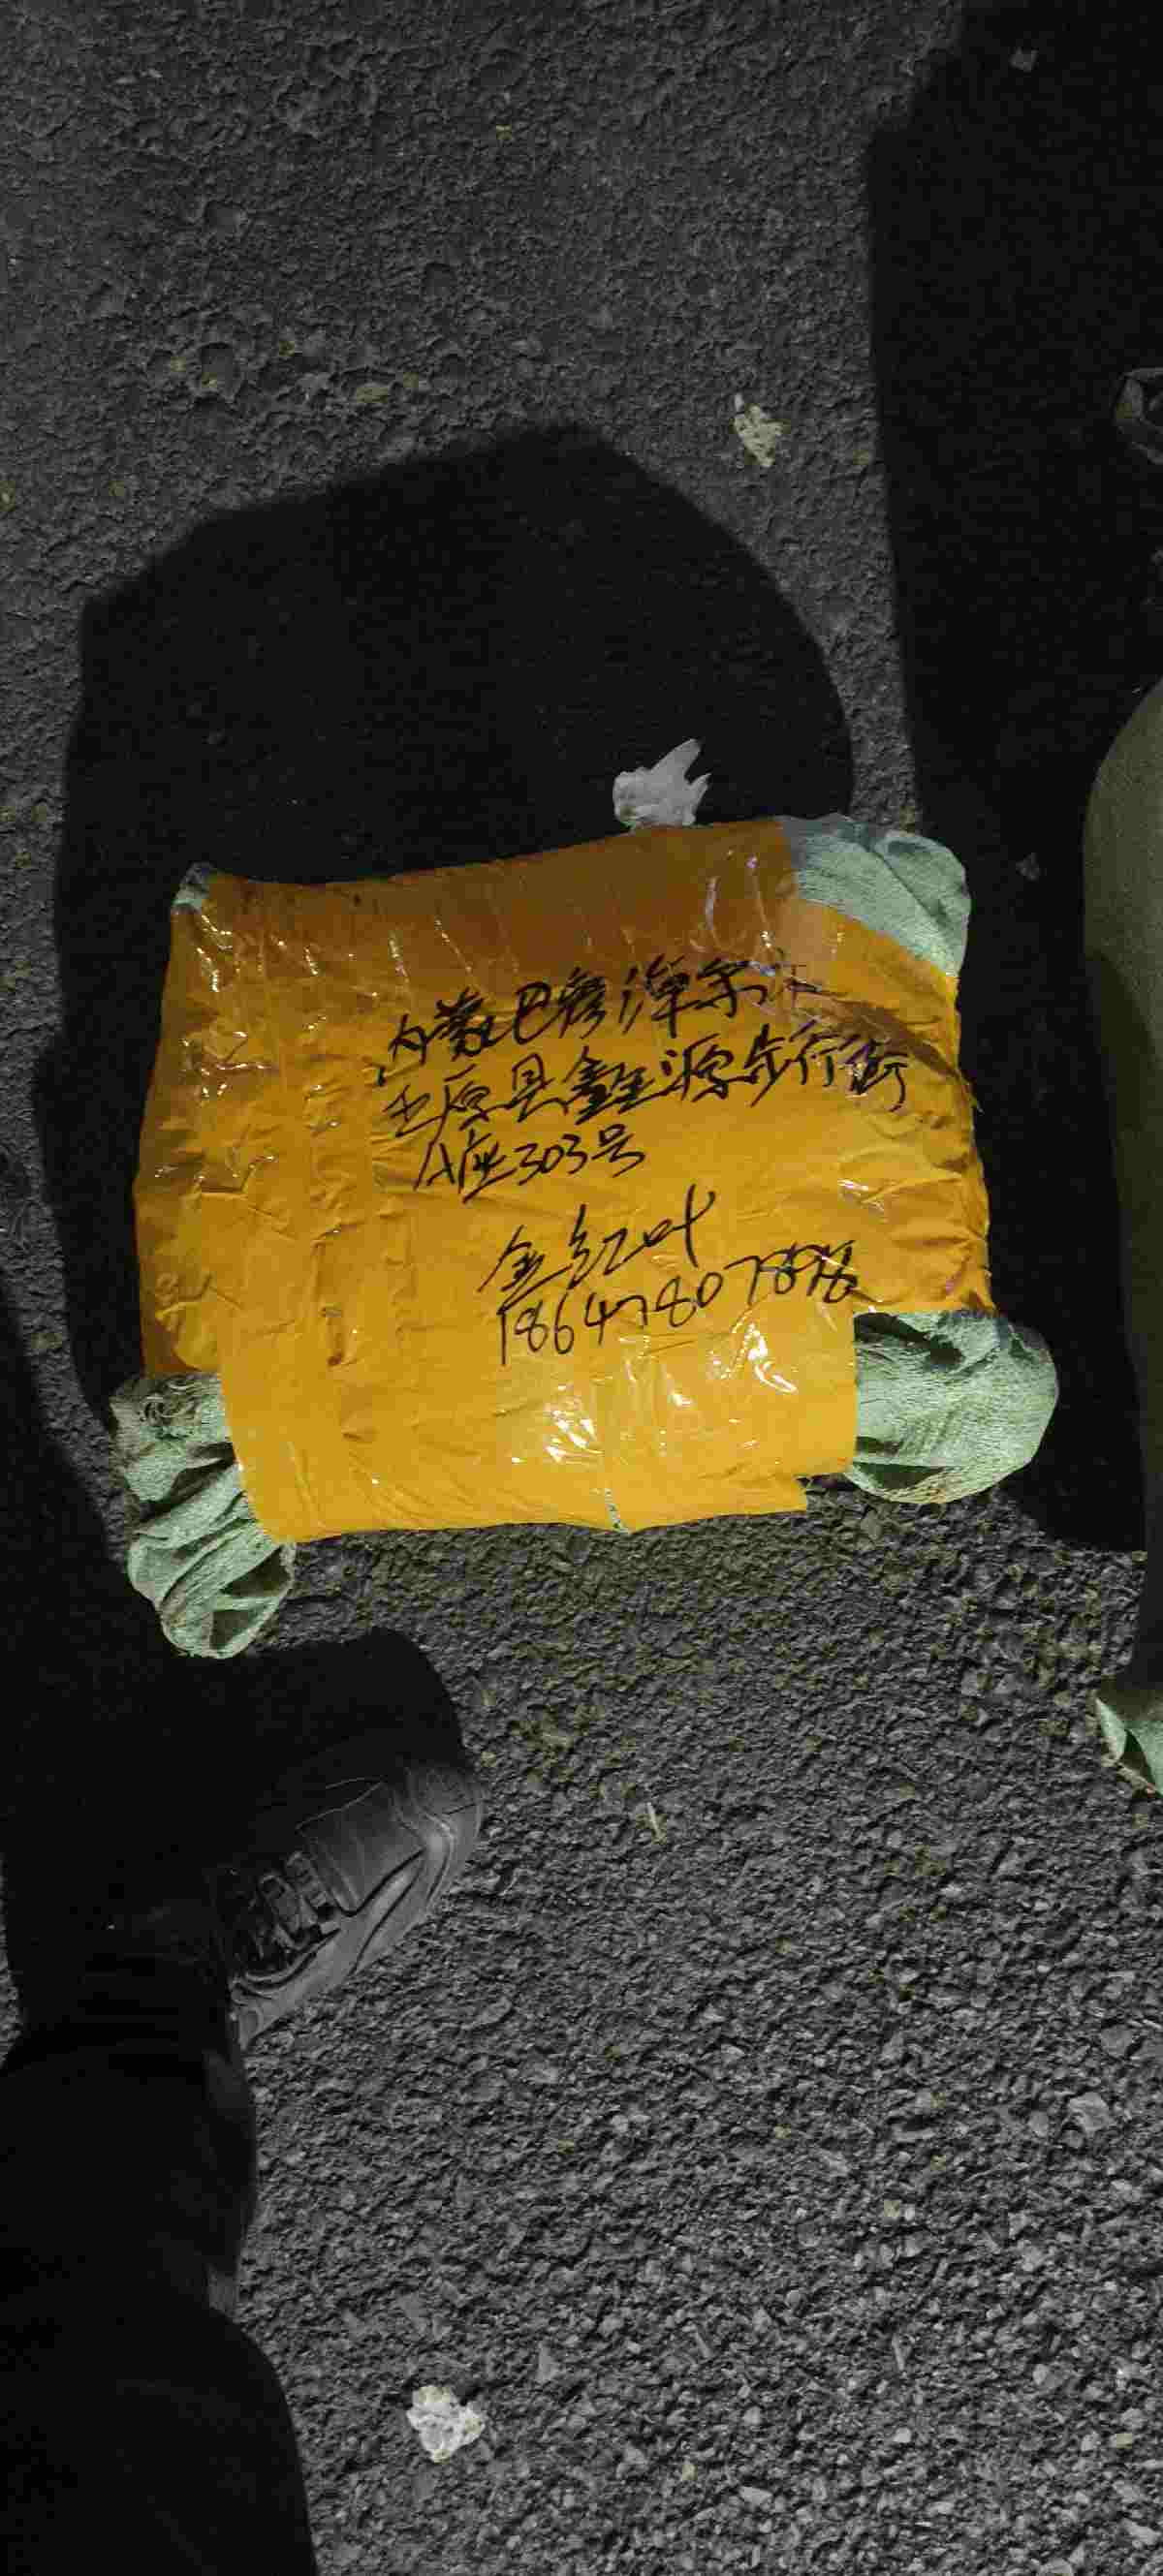 内蒙巴彦淖尔市
五原县鑫源步行街
A座303号
金红叶